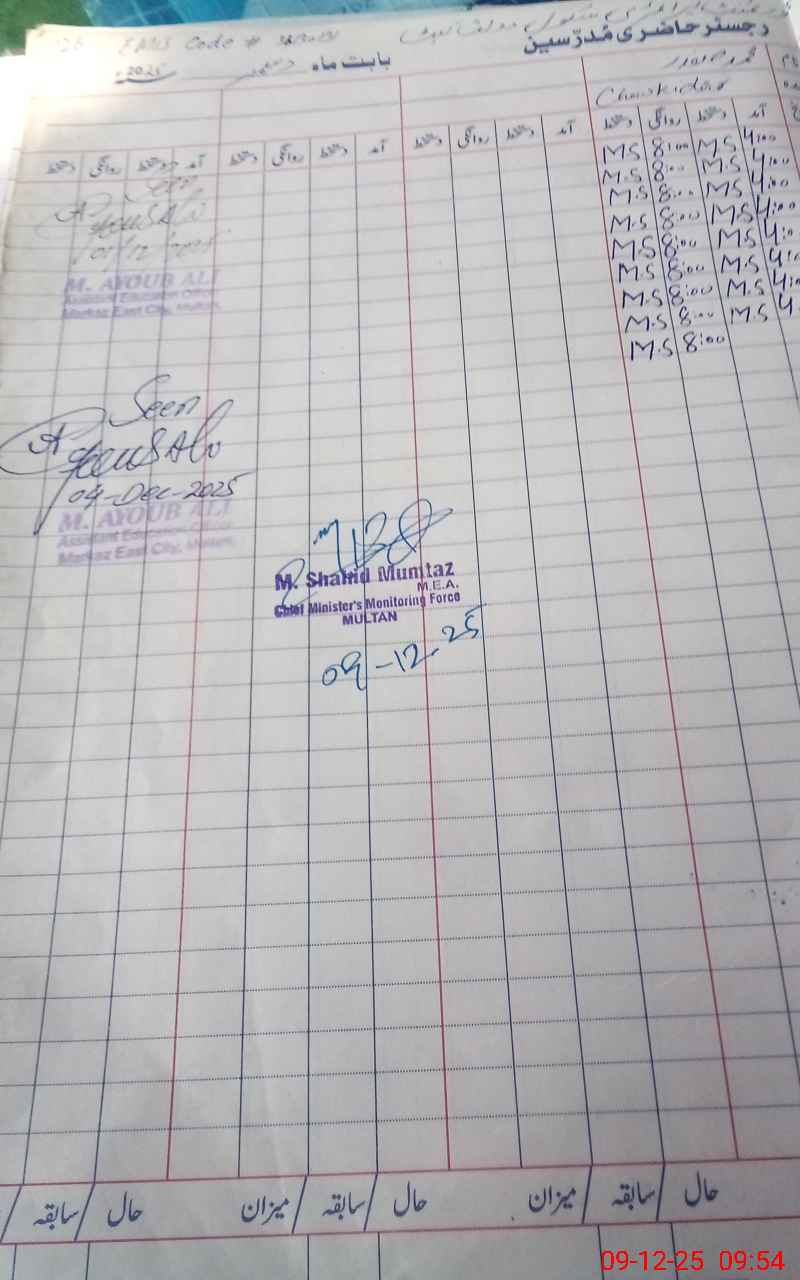 EMIS Code #
رجسٹر حاضری مُدرّسین
بابت ماہ دسمبر 2025ء
Chowkidar
آمد دستخط روانگی دستخط آمد دستخط روانگی دستخط آمد دستخط روانگی دستخط آمد دستخط روانگی دستخط
M.S 8:00 M.S 4:00
M.S 8:00 M.S 4:00
M.S 8:00 M.S 4:00
M.S 8:00 M.S 4:00
M.S 8:00 M.S 4:0
M.S 8:00 M.S 4:0
M.S 8:00 M.S 4:0
M.S 8:00 M.S 4
M.S 8:00
Seen
01/12/2025
M. AYOUB ALI
Assistant Education Officer
Markaz East City, Multan.
Seen
04-Dec-2025
M. AYOUB ALI
Assistant Education Officer
Markaz East City, Multan.
M. Shahid Mumtaz
M.E.A.
Chief Minister's Monitoring Force
MULTAN
09-12-25
حال سابقہ میزان حال سابقہ میزان حال سابقہ
09-12-25 09:54